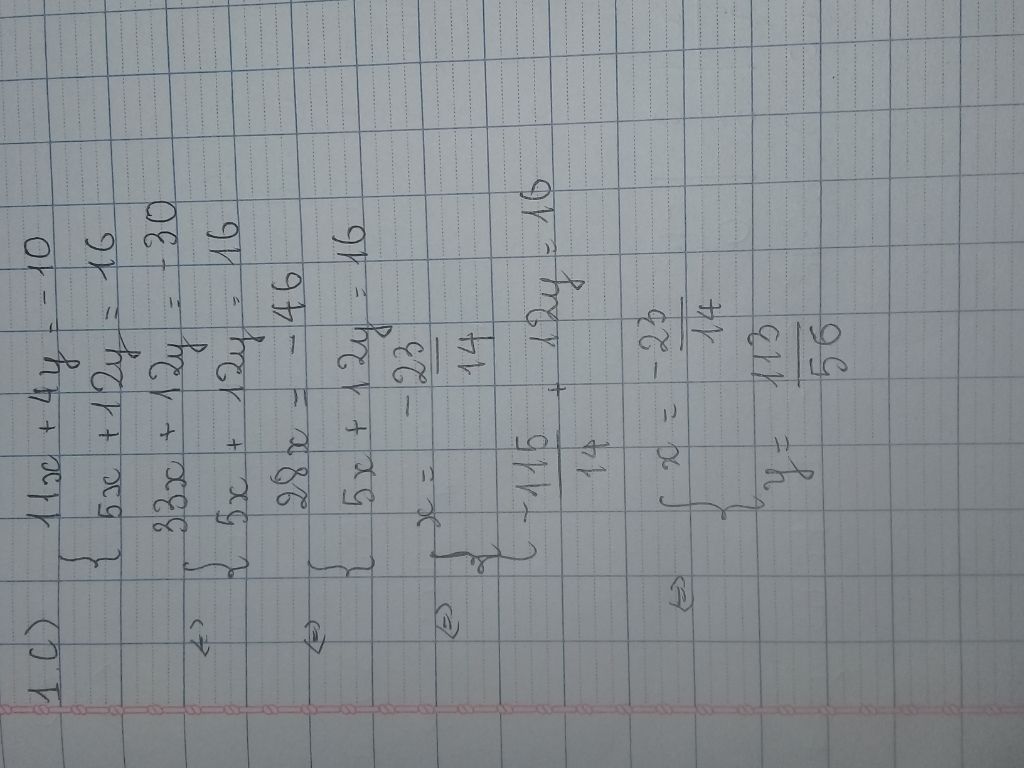 1.c) { 11x + 4y = -10
5x + 12y = 16
⇔ { 33x + 12y = -30
5x + 12y = 16
⇔ { 28x = -46
5x + 12y = 16
⇔ { x = -23/14
-115/14 + 12y = 16
⇔ { x = -23/14
y = 113/56